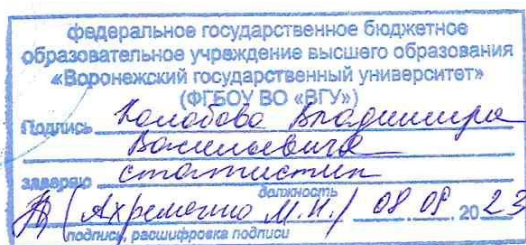 федеральное государственное бюджетное
образовательное учреждение высшего образования
«Воронежский государственный университет»
(ФГБОУ ВО «ВГУ»)
Подпись Колобова Владимира
Васильевича
заверяю статистик
должность
(Ахременко М.Н.) 08 09. 2023
подпись, расшифровка подписи